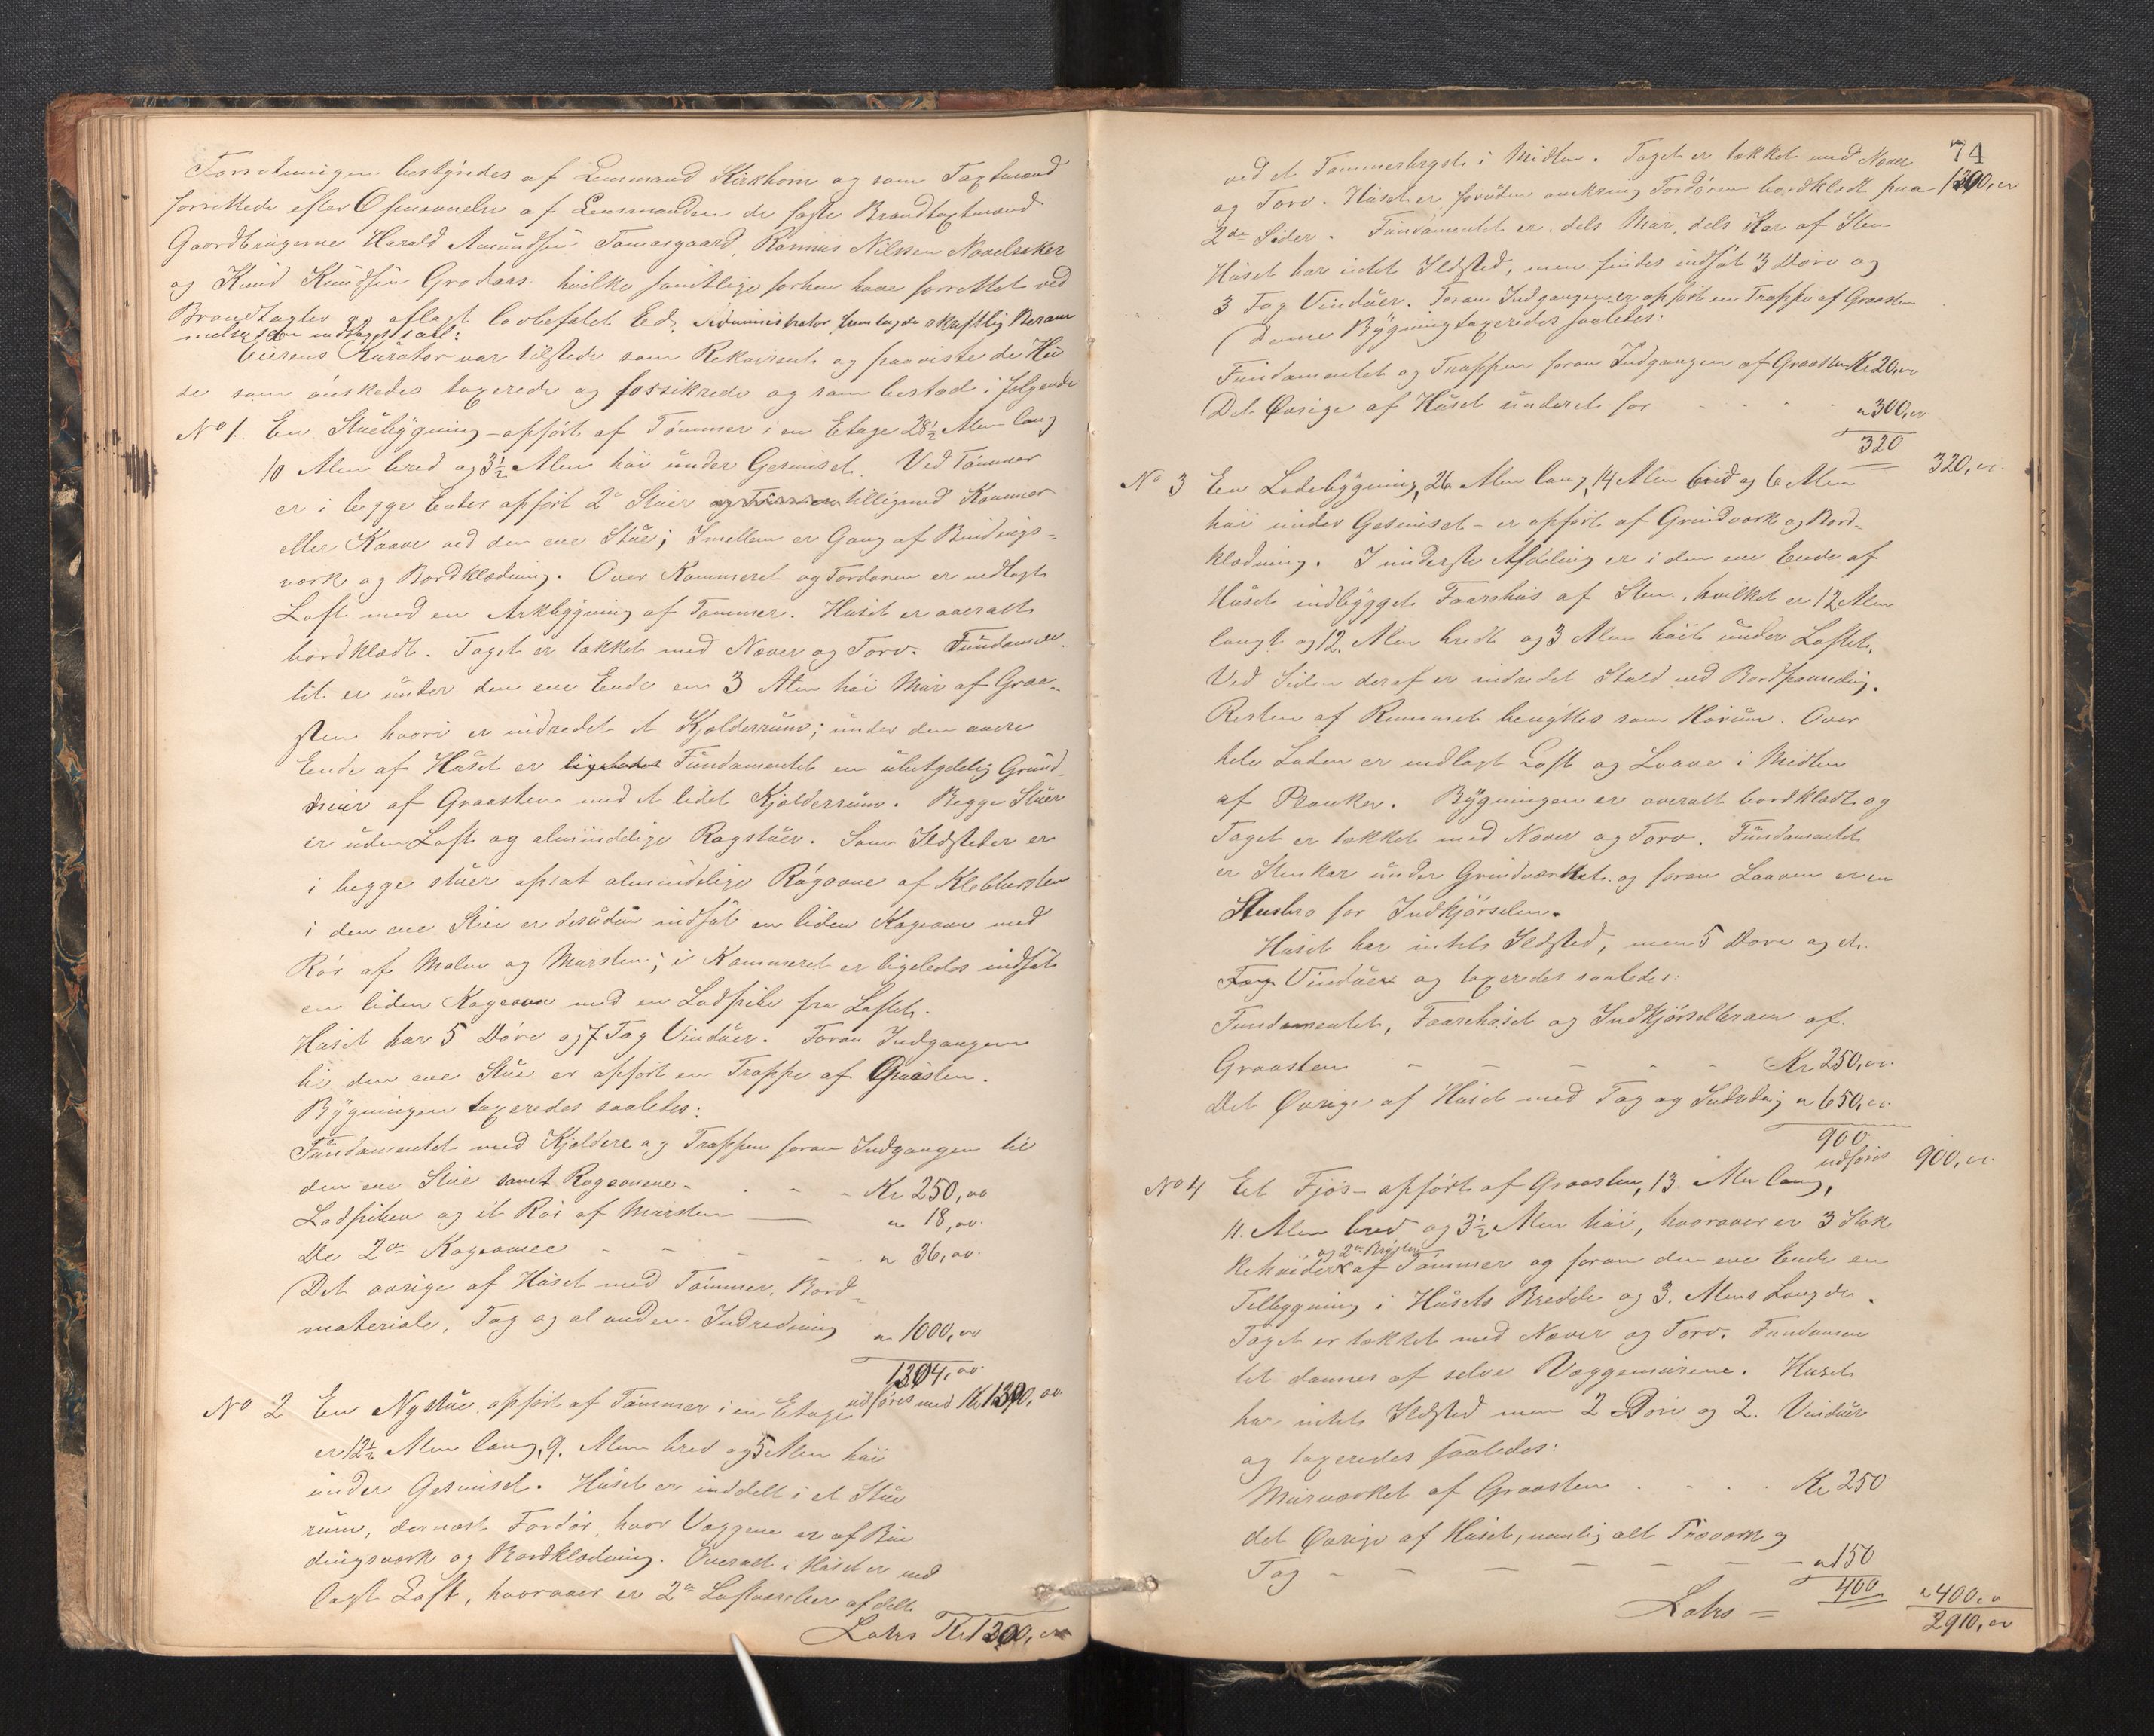 Forretningen bestyredes af Lensmand Kirkhorn og som Taxtmænd
forrettede efter Opnævnelse af Lensmanden de faste Brandtaxtmænd
Gaardbrugerne Harald Amundsen Tomasgaard, Rasmus Nilssen Navelsaker
og Knud Knudsen Grodaas hvilke samtlige forhen have forrettet ved
Brandtagter og aflagt lovbefalet Ed. Administrator fremlagde skriftlig Beram
melse som indtages saal:
Eierens Kurator var tilstede som Rekvirent og paaviste de Hu
se som ønskedes taxerede og forsikrede og som bestod i følgende
No 1. En Stuebygning opført af Tømmer i en Etage 28½ Alen lang
10 Alen bred og 3½ Alen høi under Gesimset. Ved Tømmer
er i begge Ender opført 2de Stuer tilligemed Kammer
eller Kaave ved den ene Stue; Imellem er Gang af Bindings-
værk og Bordklædning. Over Kammeret og Fordøren er nedlagt
Loft med en Arkbygning af Tømmer. Huset er overalt
bordklædt. Taget er tækket med Næver og Torv. Fundamen
tet er under den ene Ende en 3 Alen høi Mur af Graa-
sten hvori er indredet et Kjelderrum; under den andre
Ende af Huset er ligeledes Fundamentet en ubetydelig Grund
mur af Graasten med et lidet Kjelderrum. Begge Stuer
er uden Loft og almindelige Røgstuer. Som Ildsteder er
i begge stuer opsat almindelige Røgovne af Klebbersten
i den ene Stue er desuden indsat en liden Kogeovn med
Rør af Malm og Mursten; i Kammeret er ligeledes indsat
en liden Kogeovn med en Ladpibe fra Loftet.
Huset har 5 Døre og 7 Fag Vinduer. Foran Indgangen
til den ene Stue er opført en Trappe af Graasten.
Bygningen taxeredes saaledes:
Fundamentet med Kjeldere og Trappen foran Indgangen til
den ene Stue samt Røgovnene - . - - Kr 250,00
Ladpiben og et Rør af Mursten — " 18,00
De 2de Kogeovne - - - - - " 36,00
Det øvrige af Huset med Tømmer, Bord-
materiale, Tag og al anden Indredning " 1000,00
1304,00
udføres med Kr 1300,00
No 2 En Nystue opført af Tømmer i en Etage
er 12½ Alen lang, 9 Alen bred og 5 Alen høi
under Gesimset. Huset er inddelt i et Stue
rum, dernæst Fordør, hvor Væggene er af Bin
dingsværk og Bordklædning. Overalt i Huset er ned
lagt Loft, hvorover er 2de Loftværelser afdelt
Latus Kr 1300,00
74
ved et Tømmerbryst i Midten. Taget er tækket med Næver
og Torv. Huset er foruden omkring Fordøren bordklædt paa 1300,00
2de Sider. Fundamentet er dels Mur, dels Kar af Sten
Huset har intet Ildsted, men findes indsat 3 Døre og
3 Fag Vinduer. Foran Indgangen er opført en Trappe af Graasten
Denne Bygning taxeredes saaledes:
Fundamentet og Trappen foran Indgangen af Graasten Kr 20,00
Det Øvrige af Huset vurderet for - - - - " 300,00
320
320,00
No 3 En Ladebygning, 26 Alen lang, 14 Alen bred og 6 Alen
høi under Gesimset - er opført af Grindværk og Bord-
klædning. I underste Afdeling er i den ene Ende af
Huset indbygget Faarehus af Sten, hvilket er 12 Alen
langt og 12 Alen bredt og 3 Alen høit under Loftet.
Ved Siden deraf er indredet Stald med Bordpanneling.
Resten af Rummet benyttes som Hørum. Over
hele Laden er nedlagt Loft og Laave i Midten
af Planker. Bygningen er overalt bordklædt og
Taget er tækket med Næver og Torv. Fundamentet
er Stenkar under Grindværket og foran Laaven er en
Stenbro for Indkjørselen.
Huset har intet Ildsted, men 5 Døre og et
Fag Vinduer og taxeredes saaledes:
Fundamentet, Faarehuset og Indkjørselbroen af
Graasten - - - - - Kr 250,00
Det Øvrige af Huset med Tag og Indredning " 650,00
900
udføres 900,00
No 4 Et Fjøs - opført af Graasten, 13 Alen lang,
11 Alen bred og 3½ Alen høi, hvorover er 3 Stok
og 2de Bryster
Rehvider af Tømmer og foran den ene Ende en
Tilbygning i Husets Bredde og 3 Alens Længde.
Taget er tækket med Næver og Torv. Fundamen
tet dannes af selve Væggemurene. Huset
har intet Ildsted men 2 Døre og 2 Vinduer
og taxeredes saaledes:
Murværket af Graasten . - . . Kr 250
det Øvrige af Huset, nemlig alt Træværk og
Tag - - - - - - " 150
400
" 400,00
Latus = 2910,00